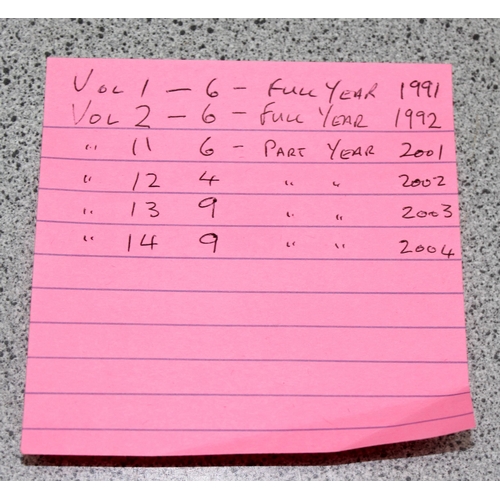 Vol 1 – 6 – Full Year 1991
Vol 2 – 6 – Full Year 1992
" 11 6 – Part Year 2001
" 12 4 " " 2002
" 13 9 " " 2003
" 14 9 " " 2004